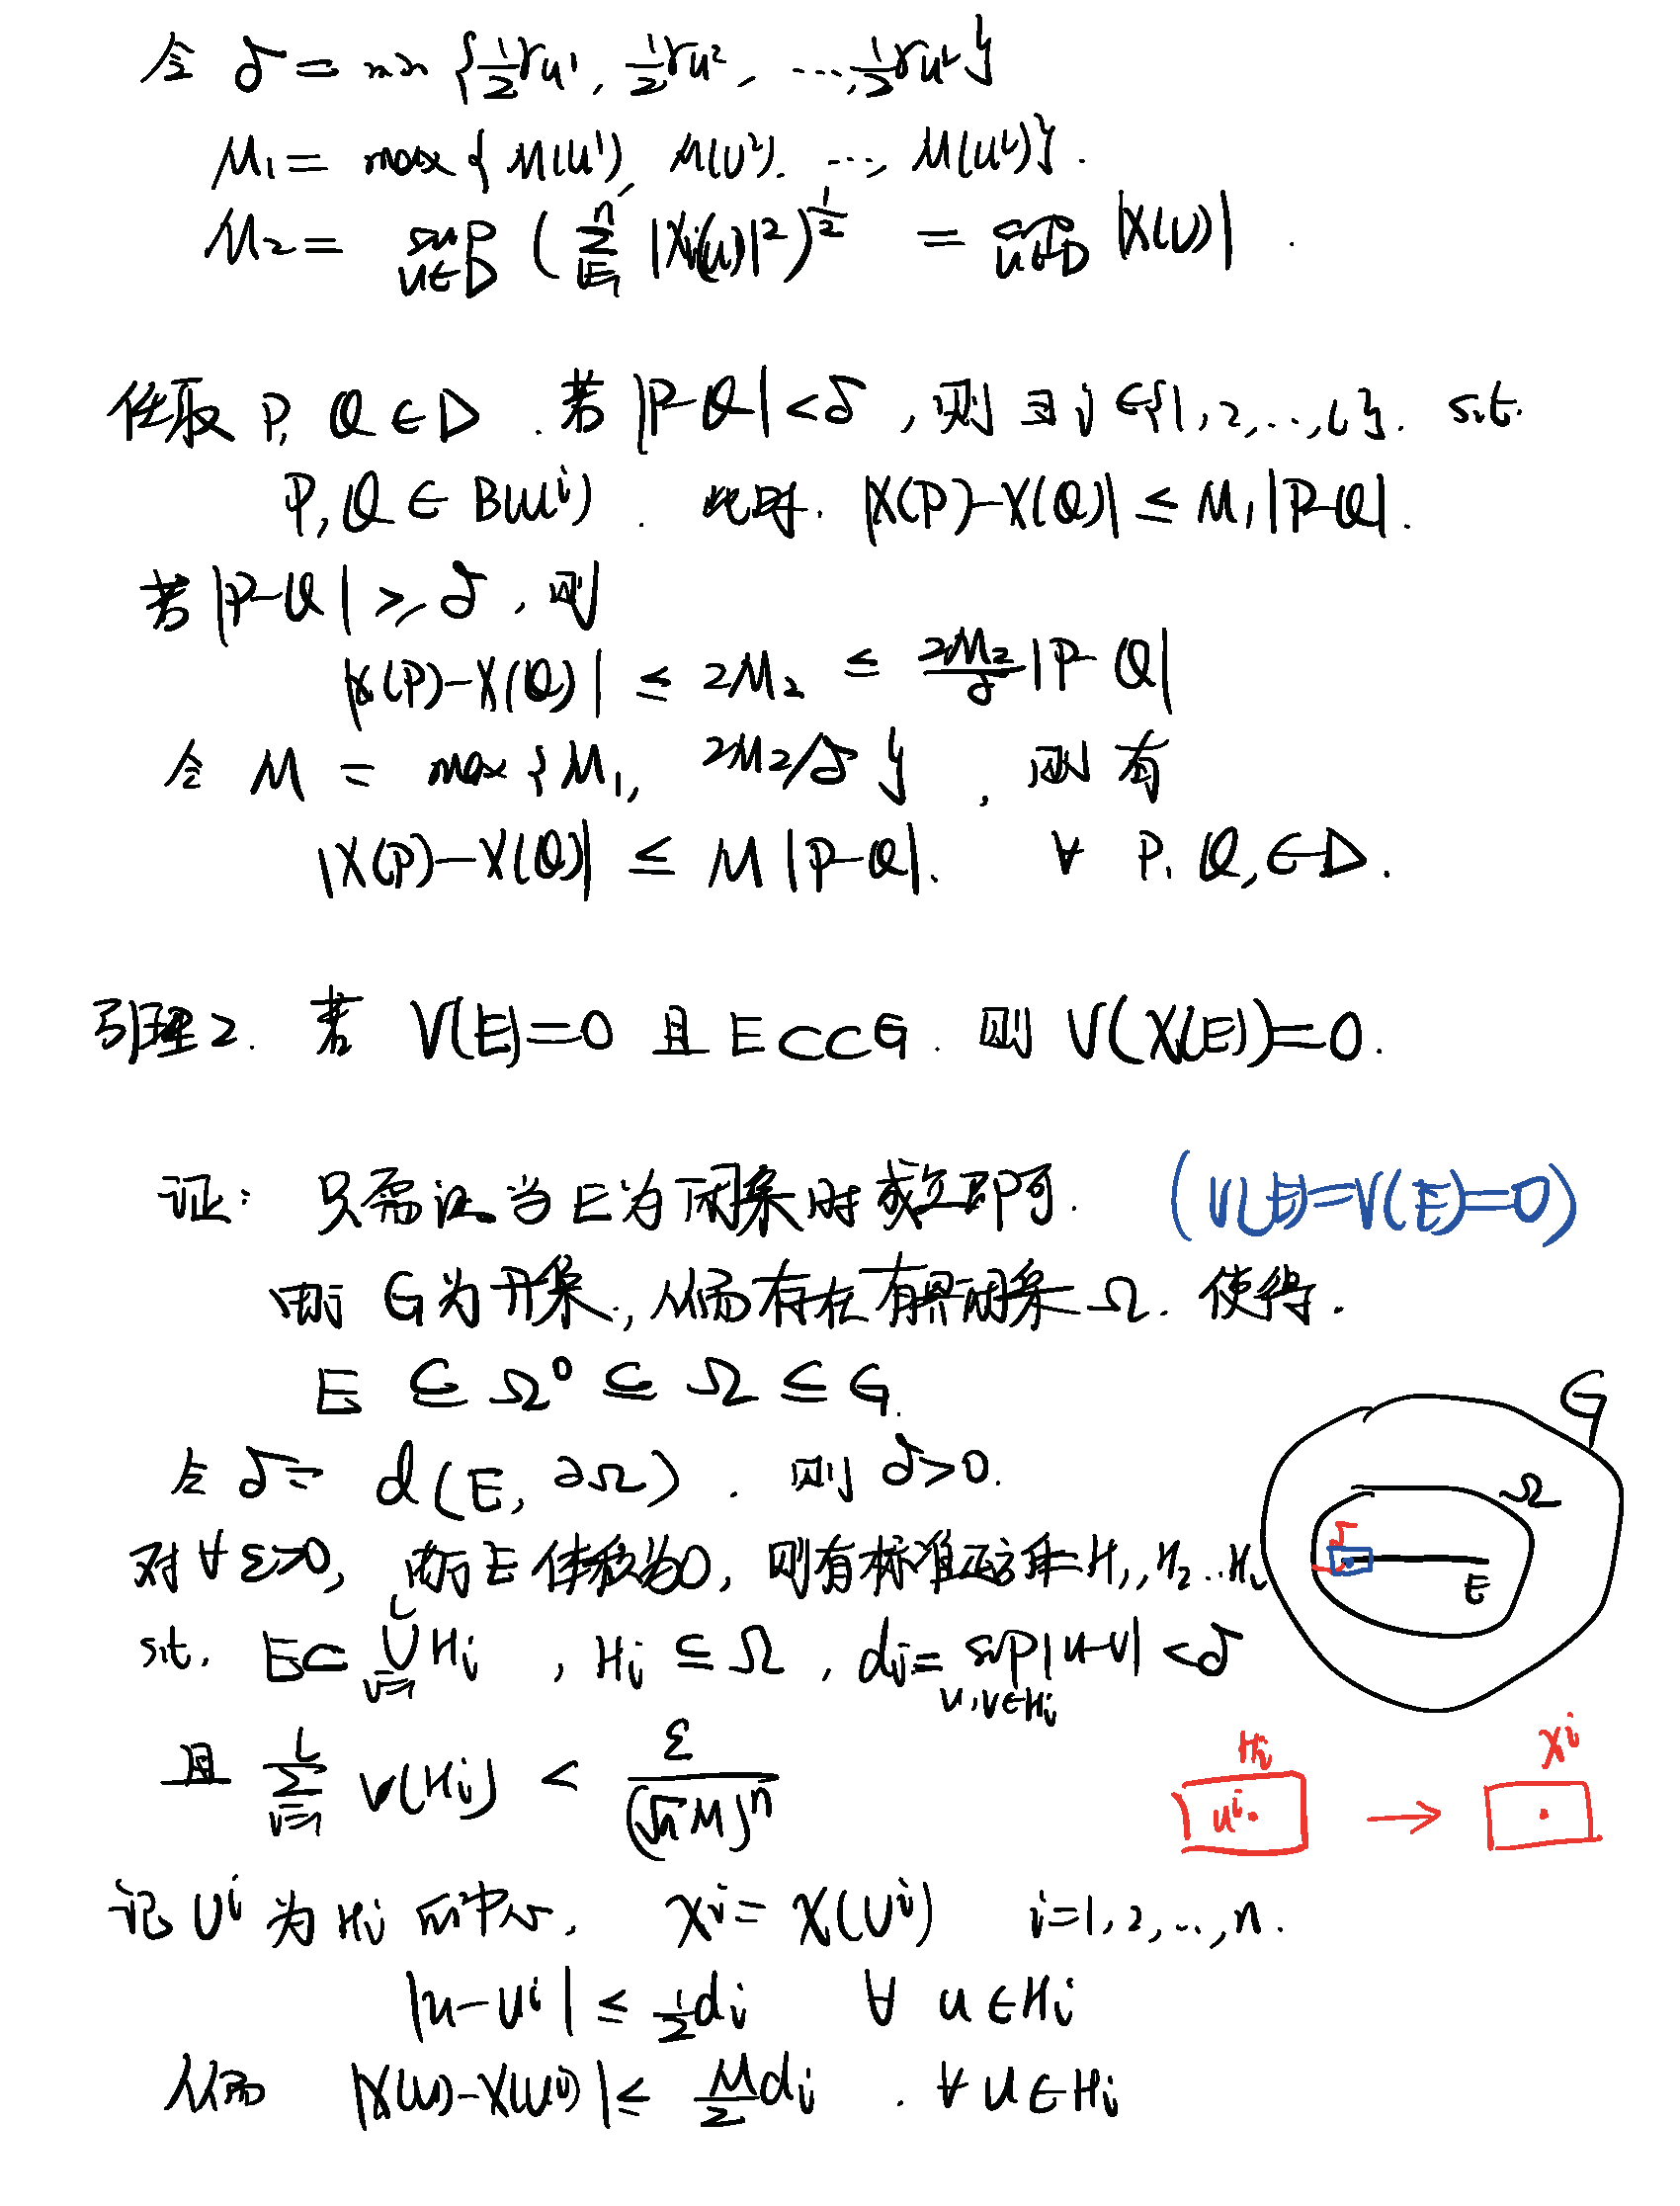 令 δ = min {½ r_{u¹}, ½ r_{u²}, …, ½ r_{u^l}}
M₁ = max { M(u¹), M(u²), …, M(u^l)}.
M₂ = sup_{u∈D} ( Σ_{i=1}^n |Xi(u)|² )^{1/2} = sup_{u∈D} |X(u)| .
任取 P, Q ∈ D . 若 |P-Q| < δ , 则 ∃ i ∈ {1, 2, …, l}. s.t.
P, Q ∈ B(uⁱ) . 此时. |X(P)-X(Q)| ≤ M₁|P-Q|.
若 |P-Q| ≥ δ , 则
|X(P)-X(Q)| ≤ 2M₂ ≤ \frac{2M₂}{δ}|P-Q|
令 M = max {M₁, 2M₂/δ } , 则有
|X(P)-X(Q)| ≤ M |P-Q|. ∀ P, Q, ∈ D .
引理2. 若 V(E)=0 且 E ⊂⊂ G . 则 V(X(E))=0 .
证: 只需证当E为闭集时成立即可. (V(E)=V(E̅)=0)
而 G为开集, 从而存在有界闭集 Ω. 使得.
E ⊆ Ω° ⊆ Ω ⊆ G.
令 δ = d(E, ∂Ω) . 则 δ>0.
对 ∀ ε>0, 而 E 体积为0, 则有标准正方体 H₁, H₂ … H_l
s.t. E ⊂ ⋃_{i=1}^l Hi , Hi ⊆ Ω , di = sup_{u,v∈Hi} |u-v| < δ
且 Σ_{i=1}^l v(Hi) < \frac{ε}{(√n M)^n}
记 uⁱ 为 Hi 的中心, xⁱ = X(uⁱ) i=1, 2, …, n.
|u-uⁱ| ≤ ½ di ∀ u ∈ Hi
从而 |X(u)-X(uⁱ)| ≤ \frac{M}{2} di . ∀ u ∈ Hi
G
Ω
δ
E
Hi
xⁱ
uⁱ.